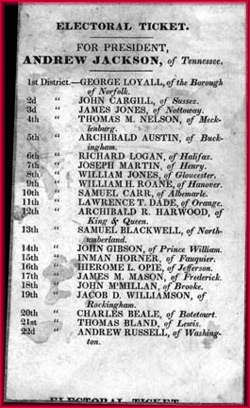 ELECTORAL TICKET.
FOR PRESIDENT,
ANDREW JACKSON, of Tennessee.
1st District.—GEORGE LOYALL, of the Borough
of Norfolk.
2d " JOHN CARGILL, of Sussex.
3d " JAMES JONES, of Nottoway.
4th " THOMAS M. NELSON, of Meck-
lenburg.
5th " ARCHIBALD AUSTIN, of Buck-
ingham.
6th " RICHARD LOGAN, of Halifax.
7th " JOSEPH MARTIN, of Henry.
8th " WILLIAM JONES, of Gloucester.
9th " WILLIAM H. ROANE, of Hanover.
10th " SAMUEL CARR, of Albemarle.
11th " LAWRENCE T. DADE, of Orange.
12th " ARCHIBALD R. HARWOOD, of
King & Queen.
13th " SAMUEL BLACKWELL, of North-
umberland.
14th " JOHN GIBSON, of Prince William.
15th " INMAN HORNER, of Fauquier.
16th " HIEROME L. OPIE, of Jefferson.
17th " JAMES M. MASON, of Frederick.
18th " JOHN M'MILLAN, of Brooke.
19th " JACOB D. WILLIAMSON, of
Rockingham.
20th " CHARLES BEALE, of Botetourt.
21st " THOMAS BLAND, of Lewis.
22d " ANDREW RUSSELL, of Washing-
ton.
ELECTORAL TICKET